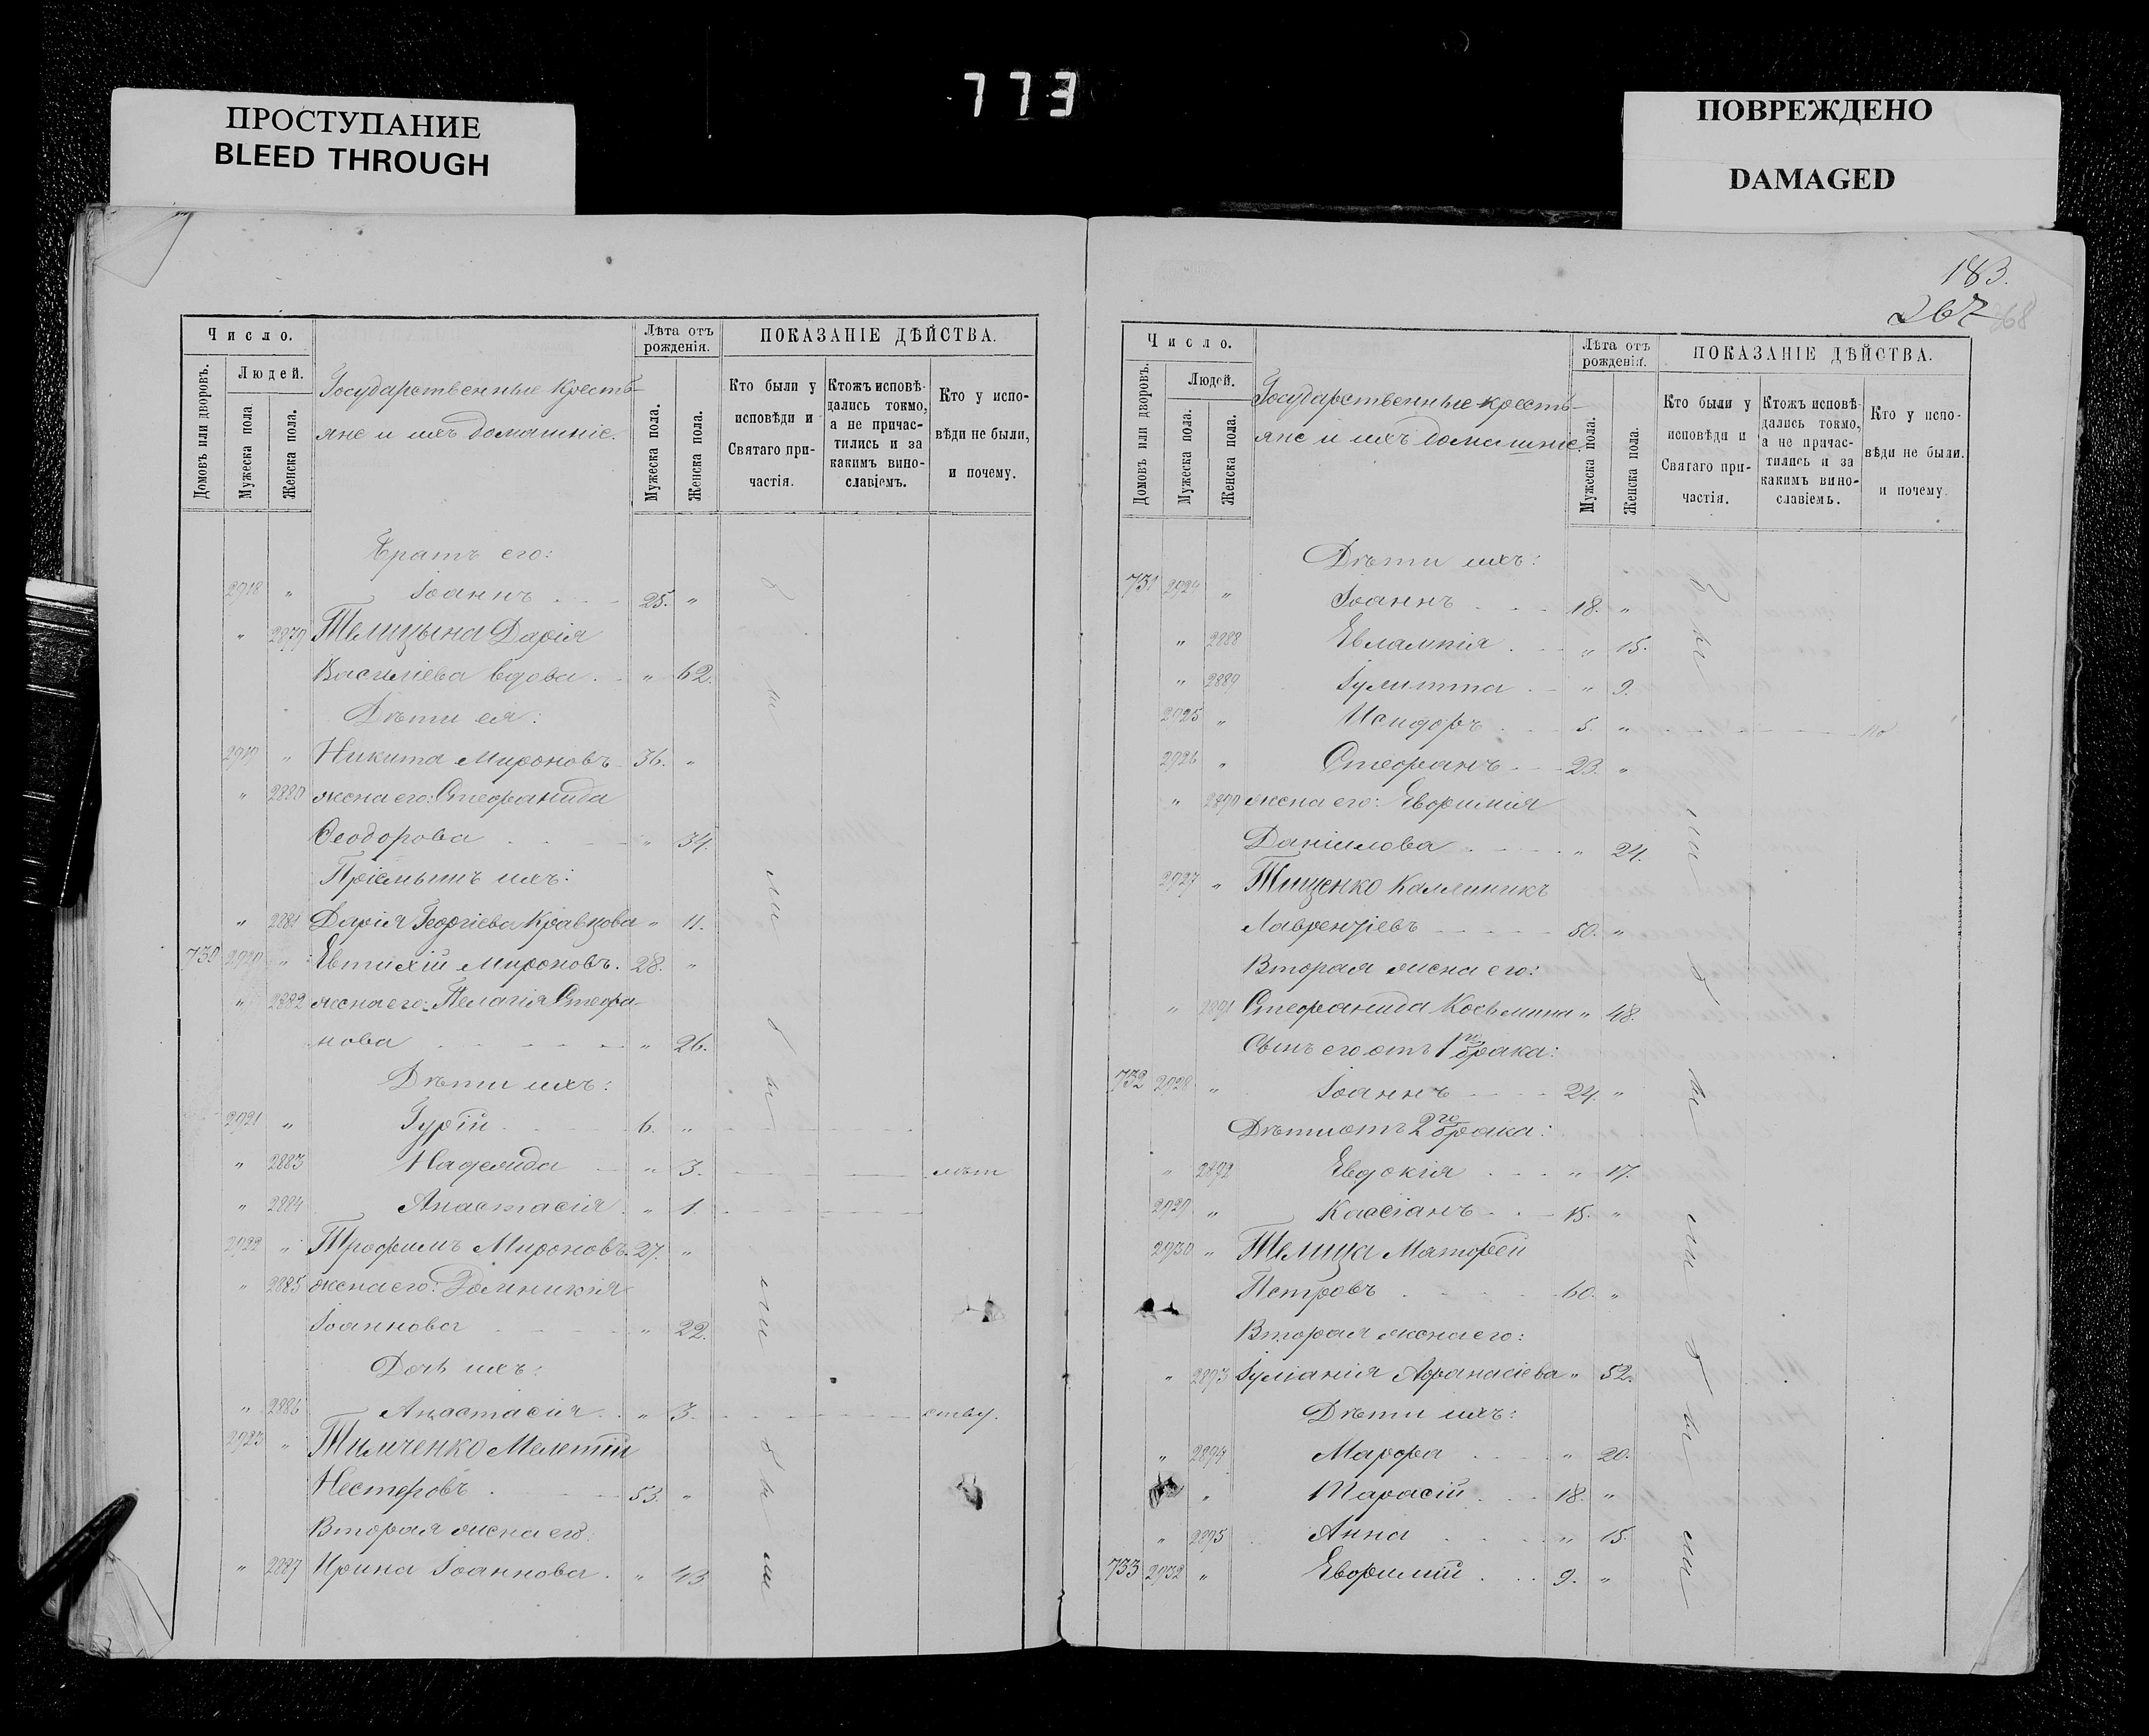 773
ПРОСТУПАНИЕ
BLEED THROUGH
ПОВРЕЖДЕНО
DAMAGED
Число.
Людей.
Домовъ или дворовъ.
Мужеска пола.
Женска пола.
Государственные кресть-
яне и ихъ домашніе.
Лѣта отъ рожденія.
Мужеска пола.
Женска пола.
ПОКАЗАНІЕ ДѢЙСТВА.
Кто были у исповѣди и Святаго при-частія.
Ктожъ исповѣ-дались токмо, а не причас-тились и за какимъ вино-славіемъ.
Кто у испо-вѣди не были, и почему.
Братъ его:
2918 " Іоаннъ 25. "
" 2879 Телицына Дарія
Василіева вдова " 62.
Дѣти ея:
2919 " Никита Мироновъ 36. "
" 2880 жена его: Стефанида
Ѳеодорова " 34.
Пріемышъ ихъ:
" 2881 Дарія Георгіева Кравцова " 11.
730 2920 " Евтихій Мироновъ. 28. "
" 2882 жена его: Пелагія Стефа
нова " 26.
Дѣти ихъ:
2921 " Гурій 6. "
" 2883 Надежда " 3. лѣт
" 2884 Анастасія " 1
2922 " Трофимъ Мироновъ 27. "
" 2885 жена его: Домникія
Іоаннова " 22.
Дочь ихъ:
" 2886 Анастасія " 3. ству.
2923 " Тимченко Мелетій
Нестеровъ 53. "
Вторая жена его:
" 2887 Ирина Іоаннова " 43
183.
267 268
Число.
Людей.
Домовъ или дворовъ.
Мужеска пола.
Женска пола.
Государственные кресть-
яне и ихъ домашніе.
Лѣта отъ рожденія.
Мужеска пола.
Женска пола.
ПОКАЗАНІЕ ДѢЙСТВА.
Кто были у исповѣди и Святаго при-частія.
Ктожъ исповѣ-дались токмо, а не причас-тились и за какимъ вино-славіемъ.
Кто у испо-вѣди не были. и почему.
Дѣти ихъ:
731 2924 " Іоаннъ 18. "
" 2888 Евлампія " 15.
" 2889 Іулитта " 9.
2925 " Исидоръ 5. " по
2926 " Стефанъ 23. "
" 2890 жена его: Евфимія
Даніилова " 24.
2927 " Тищенко Каллиникъ
Лаврентіевъ 50. "
Вторая жена его:
" 2891 Стефанида Косьмина " 48.
Сынъ его отъ 1го брака:
732 2928 " Іоаннъ 24. "
Дѣти отъ 2го брака:
" 2892 Евдокія " 17.
2929 " Кассіанъ 15. "
2930 " Телица Матфей
Петровъ 60. "
Вторая жена его:
" 2893 Іуліанія Афанасіева " 52.
Дѣти ихъ:
" 2894 Марфа " 20.
" Тарасій 18. "
" 2895 Анна " 15.
733 2932 " Евфимій 9. "